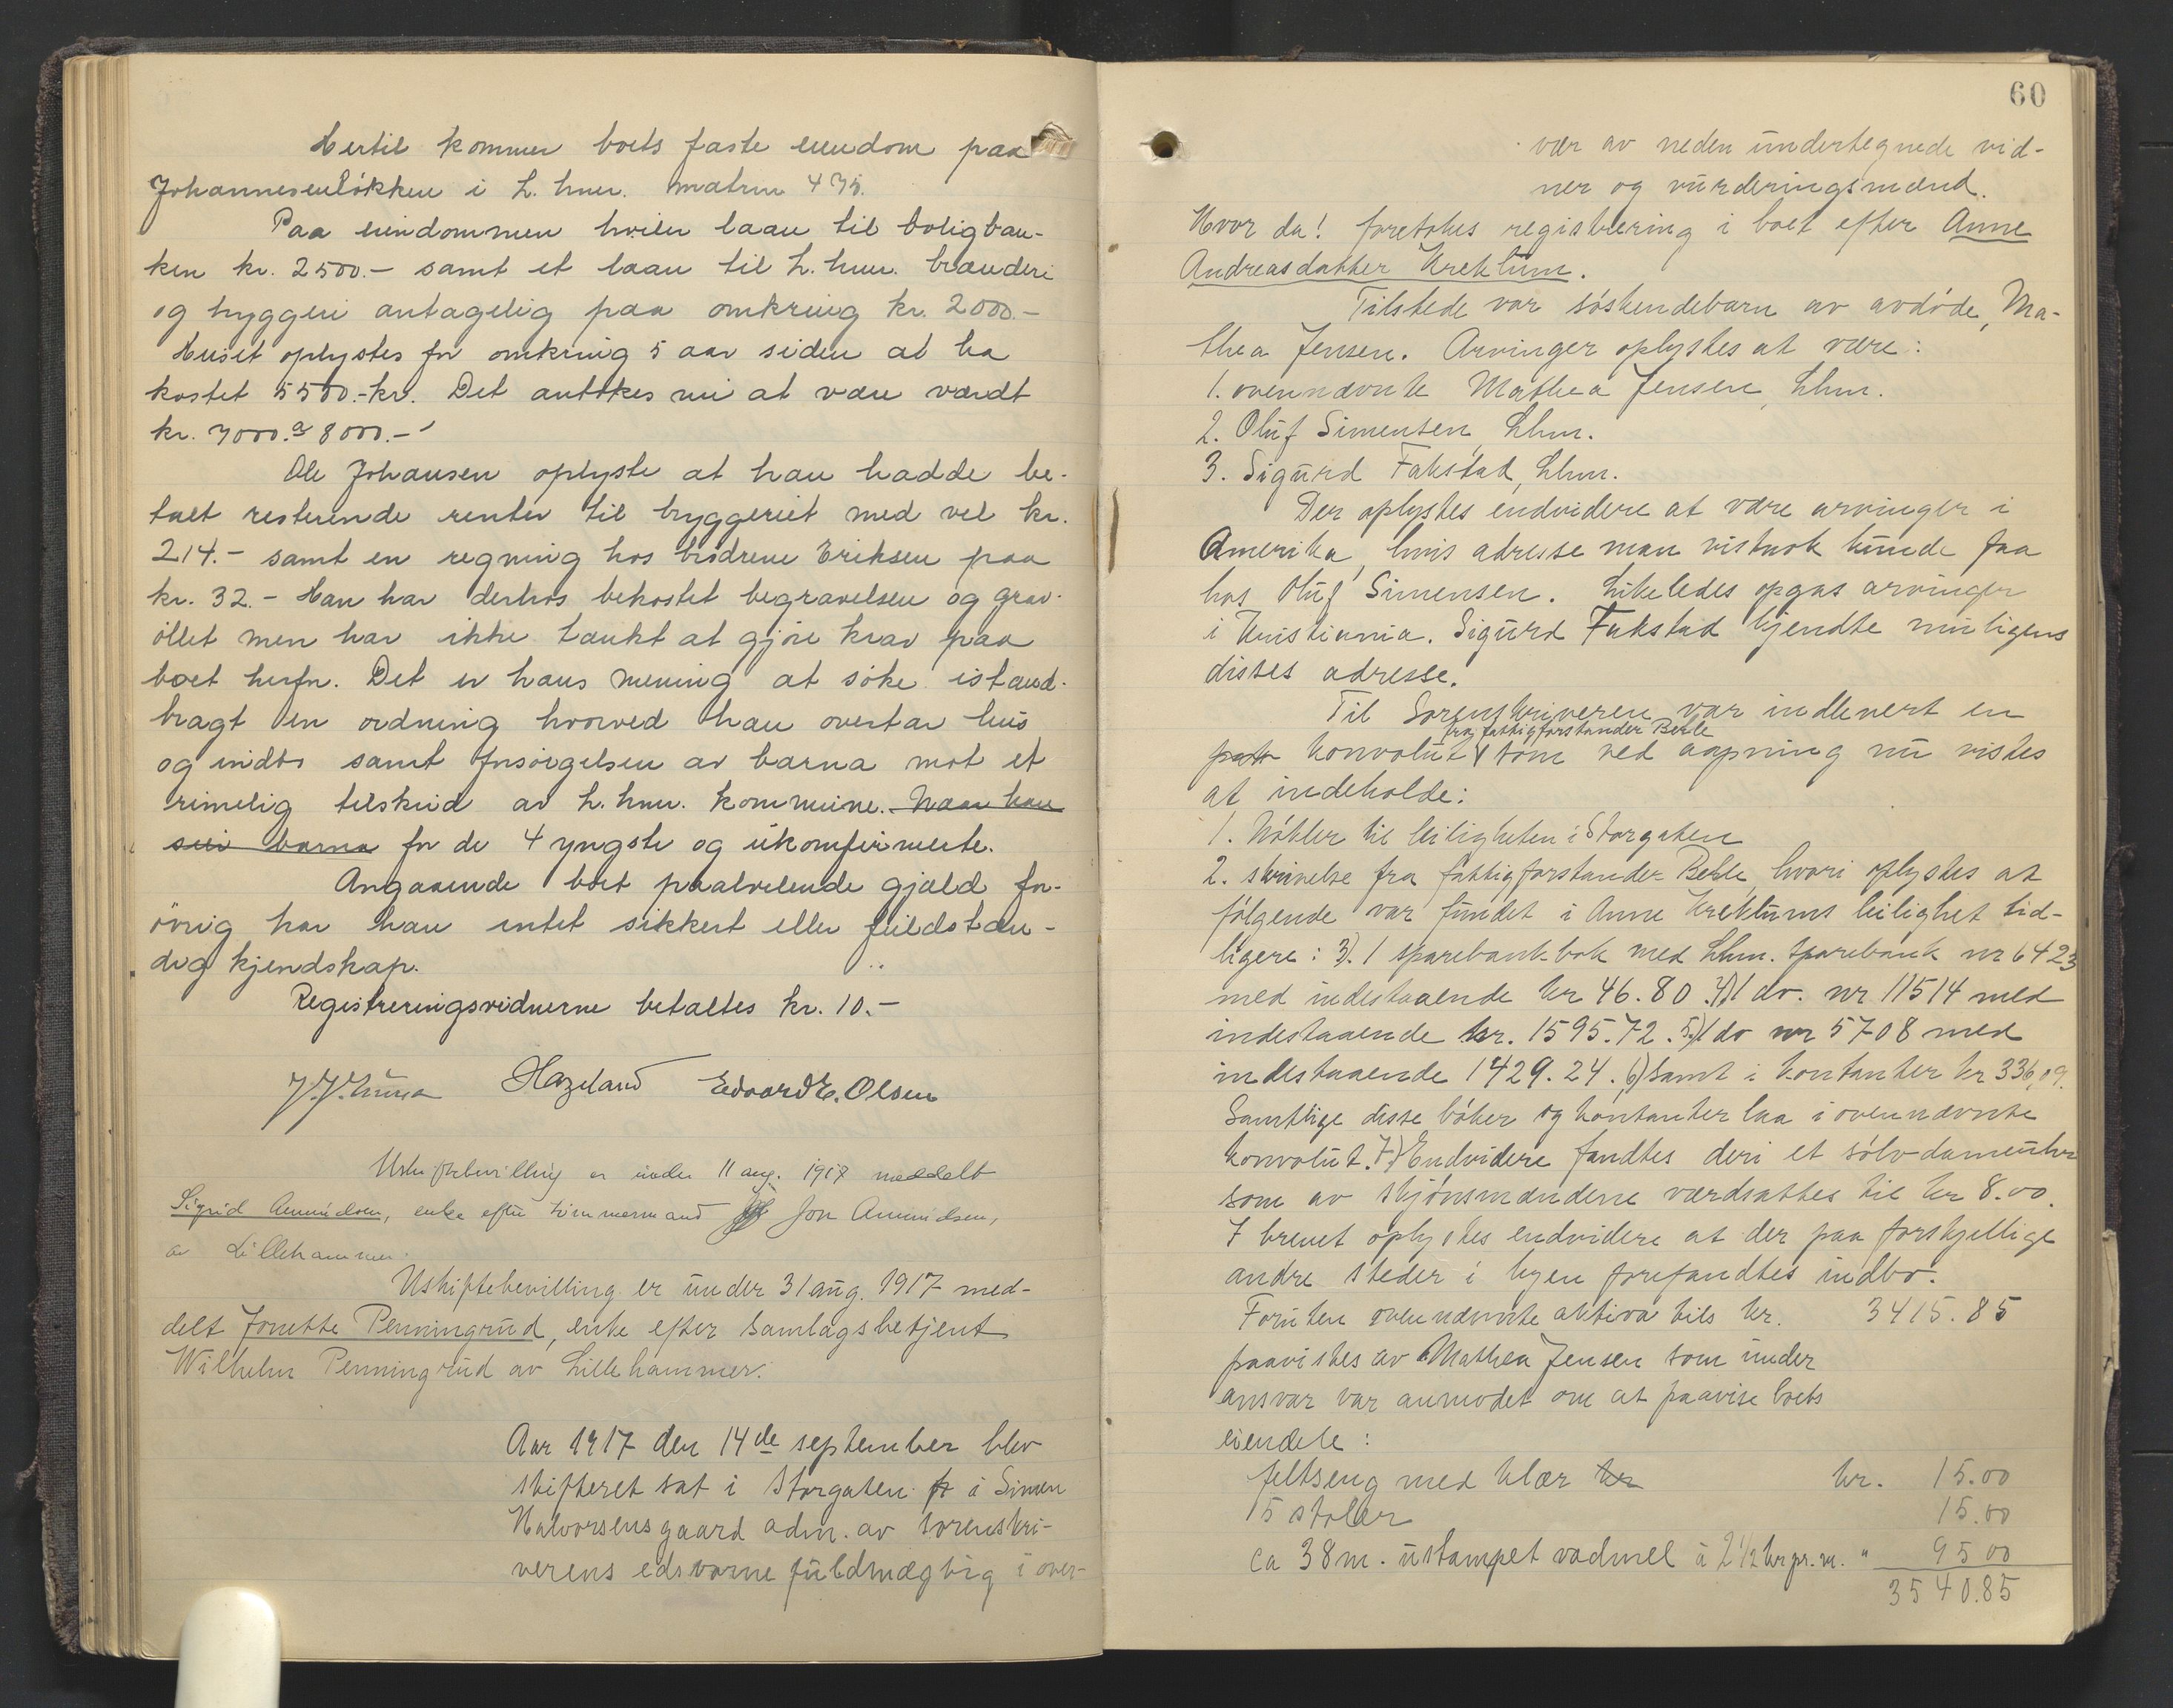 Hertil kommer boets faste eiendom paa
Johannesenløkken i L.hmr. matrnr 435.
Paa eiendommen hviler laan til boligban-
ken kr. 2500.- samt et laan til L.hmr. brænderi
og bryggeri antagelig paa omkring kr. 2000.-
Huset oplystes for omkring 5 aar siden at ha
kostet 5500.-kr. Det anttokes nu at være værdt
kr. 7000. a 8000.-
Ole Johansen oplyste at han hadde be-
talt resterende renter til bryggeriet med vel kr.
214.- samt en regning hos brødrene Eriksen paa
kr. 32.- Han har derhos bekostet begravelsen og grav-
øllet men har ikke tænkt at gjøre krav paa
boet herfor. Det er hans mening at søke istand-
bragt en ordning hvorved han overtar hus
og indbo samt forsørgelsen av barna mot et
rimelig tilskud av L.hmr. kommune. Naar han
sier barna for de 4 yngste og ukonfirmerte.
Angaaende boet paahvilende gjæld for-
øvrig har han intet sikkert eller fuldstæn-
dig kjendskap.
Registreringsvidnerne betaltes kr. 10.-
Hazeland Edvard E. Olsen
Uskiftebevilling er under 11 aug. 1917 meddelt
Sigrid Amundsen, enke efter tømmermand Jon Amundsen,
av Lillehammer.
Uskiftebevilling er under 31 aug. 1917 med-
delt Jonette Penningrud, enke efter Samlagsbetjent
Wilhelm Penningrud av Lillehammer.
Aar 1917 den 14de september blev
skifteret sat i Storgaten i Simen
Halvorsensgaard adm. av sorenskri-
verens edsvorne fuldmægtig i over-
60
vær av neden undertegnede vid-
ner og vurderingsmænd.
Hvor da! foretokes registrering i boet efter Anne
Andreasdatter Krektum.
Tilstede var søskendebarn av avdøde, Ma-
thea Jensen. Arvinger oplystes at være:
1. ovennævnte Mathea Jensen, Lhmr.
2. Oluf Simensen, Lhmr.
3. Sigurd Fakstad, Lhmr.
Der oplystes endvidere at være arvinger i
Amerika, hvis adresse man vistnok kunde faa
hos Oluf Simensen. Likeledes opgas arvinger
i Kristiania. Sigurd Fakstad kjendte muligens
disses adresse.
Til Sorenskriveren var indlevert en
fra fattigforstander Berle
konvolut som ved aapning nu vistes
at indeholde:
1. Nøkler til leiligheten i Storgaten
2. skrivelse fra fattigforstander Berle, hvori oplystes at
følgende var fundet i Anne Krektums leilighet tid-
ligere: 3). 1 sparebankbok med Lhmr. Sparebank nr 6423
med indestaaende kr 46.80. 4) 1 do. nr 11514 med
indestaaende kr. 1595.72. 5.) 1 do nr 5708 med
indestaaende 1429.24. 6) Samt i kontanter kr 336,09.
Samtlige disse bøker og kontanter laa i ovennævnte
konvolut. 7) Endvidere fandtes deri et sølv-dameuhr
som av skjønsmændene værdsattes til kr 8.00.
I brevet oplystes endvidere at der paa forskjellige
andre steder i byen forefandtes indbo.
Foruten ovennævnte aktiva tils kr. 3415.85
paavistes av Mathea Jensen som under
ansvar var anmodet om at paavise boets
eiendele:
feltseng med klær kr kr. 15.00
5 stoler 15.00
ca 38 m. ustampet vadmel à 2 1/2 kr pr. m. " 95 00
3540.85